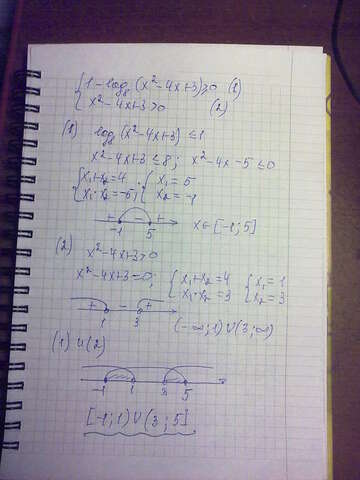 { 1 - log₈(x² - 4x + 3) ≥ 0 (1)
x² - 4x + 3 > 0 (2)
(1) log₈(x² - 4x + 3) ≤ 1
x² - 4x + 3 ≤ 8; x² - 4x - 5 ≤ 0
{ x₁ + x₂ = 4 { x₁ = 5
x₁ · x₂ = -5; x₂ = -1
+ - +
-1 5 x ∈ [-1; 5]
(2) x² - 4x + 3 > 0
x² - 4x + 3 = 0; { x₁ + x₂ = 4 { x₁ = 1
x₁ · x₂ = 3 x₂ = 3
+ - +
1 3 (-∞; 1) ∪ (3; ∞)
(1) и (2)
-1 1 3 5
[-1; 1) ∪ (3; 5]